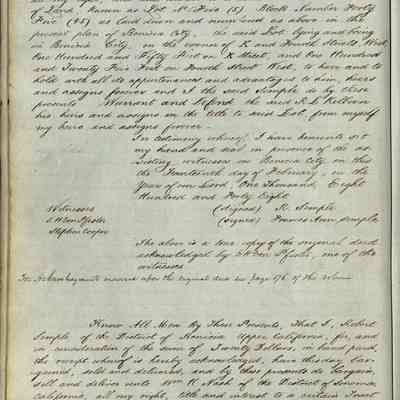 of Land, known as Lot No. Five (5) Block Number Forty
Five (45) as laid down and numbered as above in the
present plan of Benicia City, the said Lot lying and being
in Benicia City, on the corner of K and Fourth Streets West
One Hundred and Fifty Feet on K Street, and One Hundred
and Twenty Five Feet on Fourth Street West, To have and to
hold with all its appurtenances and advantages to him, heirs
and assigns forever and I the said Semple do by these
presents Warrant and Defend the said R. L. Kilburn
his heirs and assigns in the title to said Lot from myself
my heirs and assigns forever
In testimony whereof, I have hereunto set
my hand and seal in presence of the as-
sisting witnesses in Benicia City, on this
the Fourteenth day of February, in the
Year of our Lord, One Thousand, Eight
Hundred and Forty Eight
Witnesses (signed) R. Semple
E. H. Von Pfister (signed) Frances Ann Semple
Stephen Cooper
The above is a true copy of the original deed
acknowledged by E H Von Pfister, one of the
witnesses
For Acknowledgments entered upon the original deed see page 176 of this volume
Know All Men By These Presents, That I, Robert
Semple of the District of Sonoma Upper California, for, and
in consideration of the sum of Twenty Dollars, in hand paid,
the receipt whereof is hereby acknowledged, have this day bar-
gained, sold and delivered, and by these presents do bargain,
sell and deliver unto Wm H Nash of the District of Sonoma
California, all my right, title and interest to a certain Tract